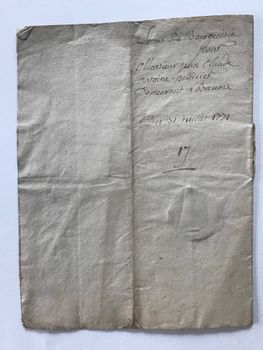 Lettres de Bourgeoisie
pour
Monsieur jean Claude
antoine pellicier
Demeurant a Baume
Du 31 juillet 1771
17